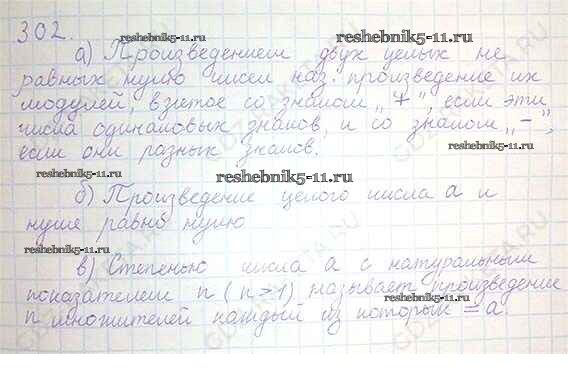 302.
reshebnik5-11.ru
reshebnik5-11.ru
а) Произведением двух целых не
равных нулю чисел наз. произведение их
модулей, взятое со знаком „+", если эти
числа одинаковых знаков, и со знаком „-",
если они разных знаков.
reshebnik5-11.ru
reshebnik5-11.ru
б) Произведение целого числа а и
нуля равно нулю
reshebnik5-11.ru
в) Степенью числа а с натуральным
показателем n (n>1) называет произведение
reshebnik5-11.ru
n множителей каждый из которых = а.
reshebnik5-11.ru